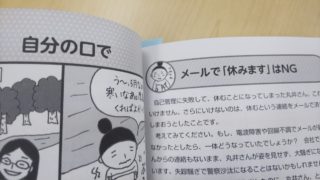 自分の口で
う〜、3月
寒いなあ
くれば
メールで「休みます」はNG
自己管理に失敗して、休むことになってしまった丸井さん。こ
いけません。さらにいけないのは、休むという連絡をメールで
しまおうとしたことです。
考えてみてください。もし、電波障害や回線不調でメールが
なかったとしたら、一体どうなっていたでしょうか? 会社で
んからの連絡もないまま、丸井さんが姿を見せず、大騒ぎに
います。失踪騒ぎで警察沙汰になることはないかもしれませ